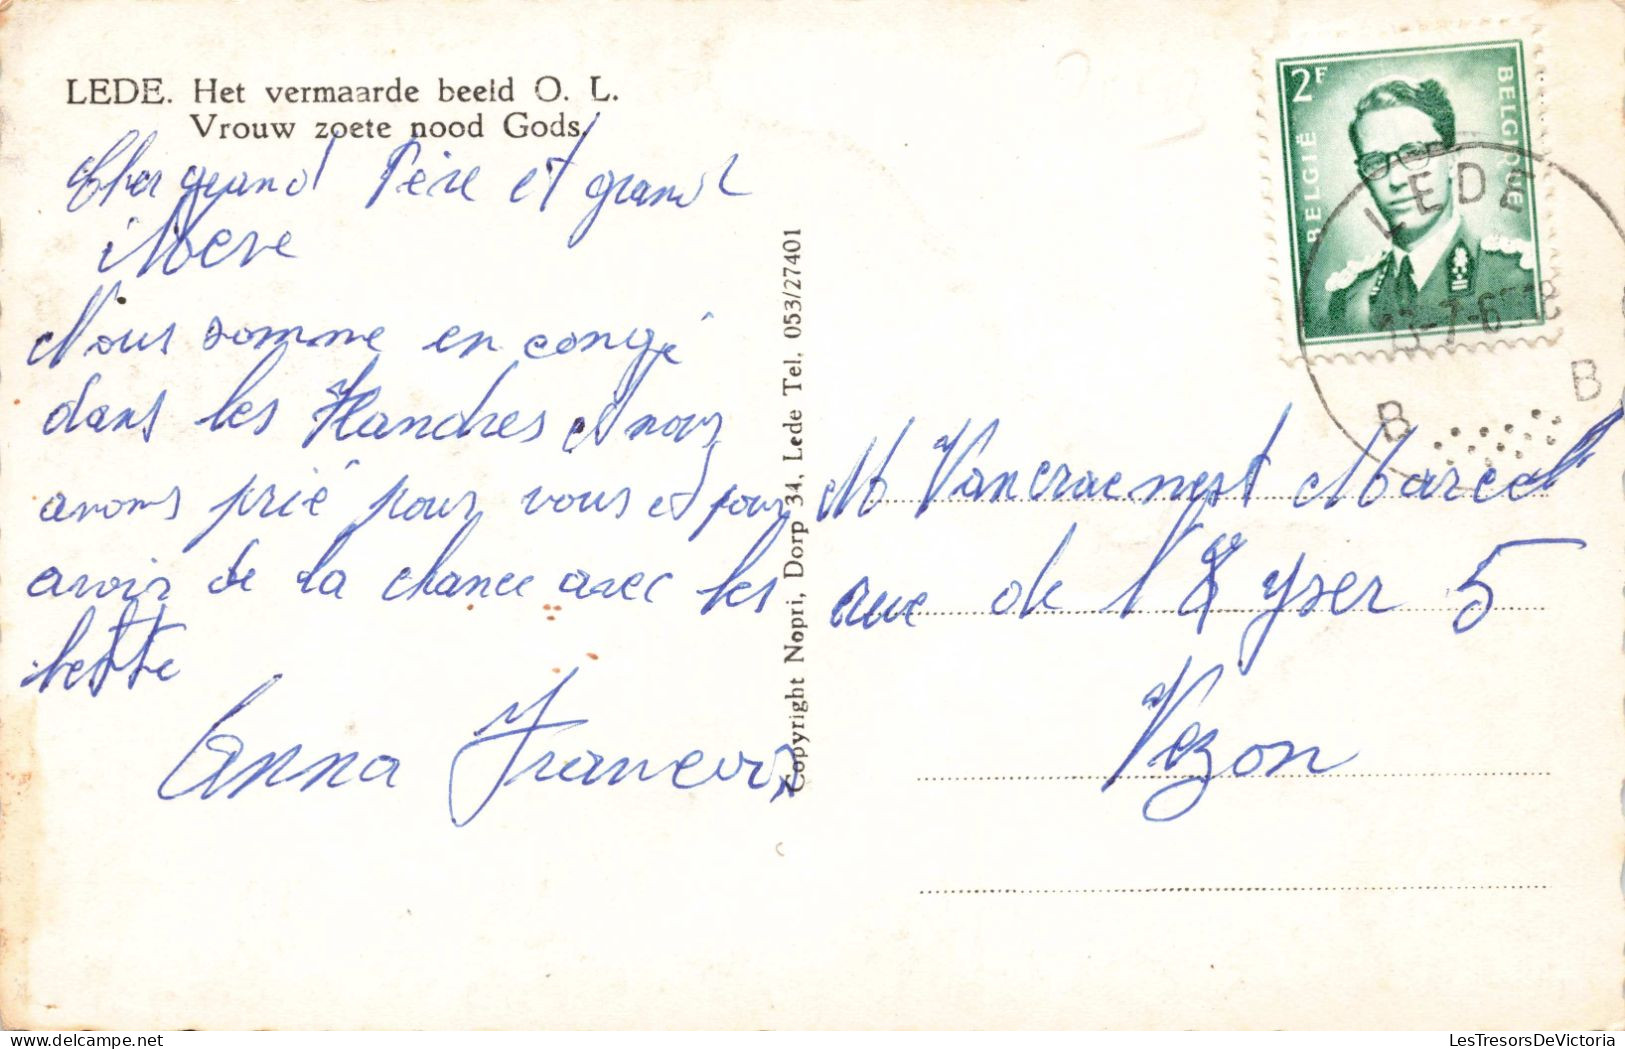 LEDE. Het vermaarde beeld O. L.
Vrouw zoete nood Gods.
Cher grand Père et grand
Mere
Nous somme en congé
dans les Flandres et nous
avons prié pour vous et pour
avoir de la chance avec les
bette
Anna Francois
Copyright Nopri, Dorp 34, Lede Tel. 053/27401
2F
BELGIË
BELGIQUE
LEDE
13-7-6 18
B B
M Vancraenest Marcel
rue de l'Yser 5
Vezon
LesTresorsDeVictoria